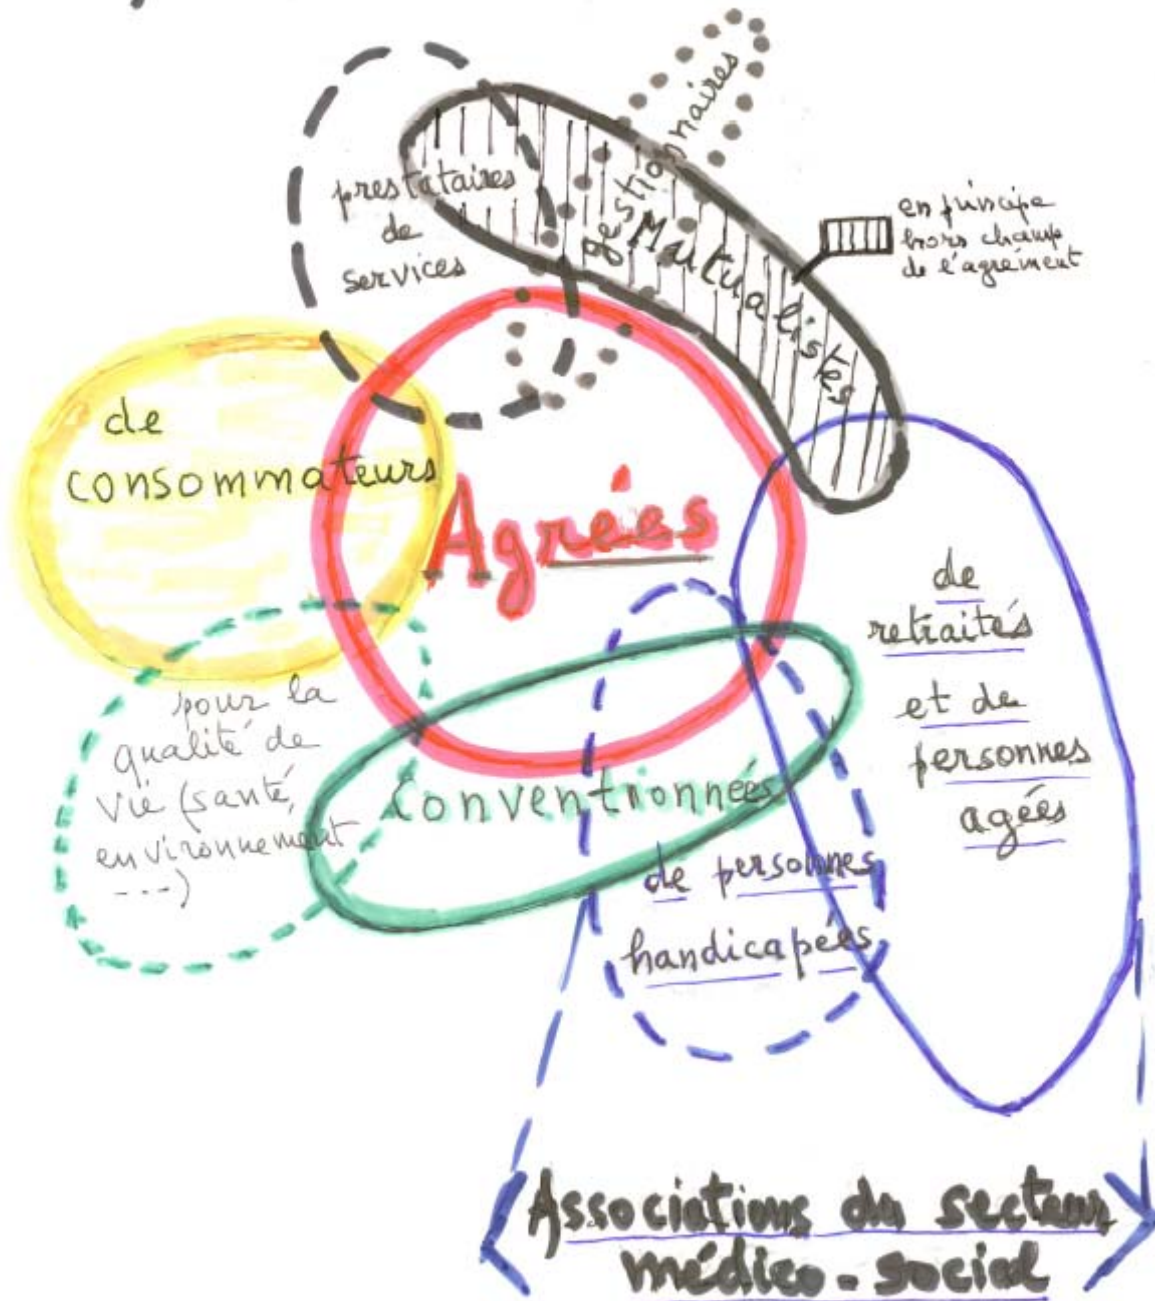 gestionnaires
prestataires
de
services
Mutualistes
en principe
hors champ
de l'agrément
de
consommateurs
Agrées
de
retraités
et de
personnes
agées
pour la
qualité de
vie (santé,
environnement
---)
Conventionnées
de personnes
handicapées
Associations du secteur
médico-social